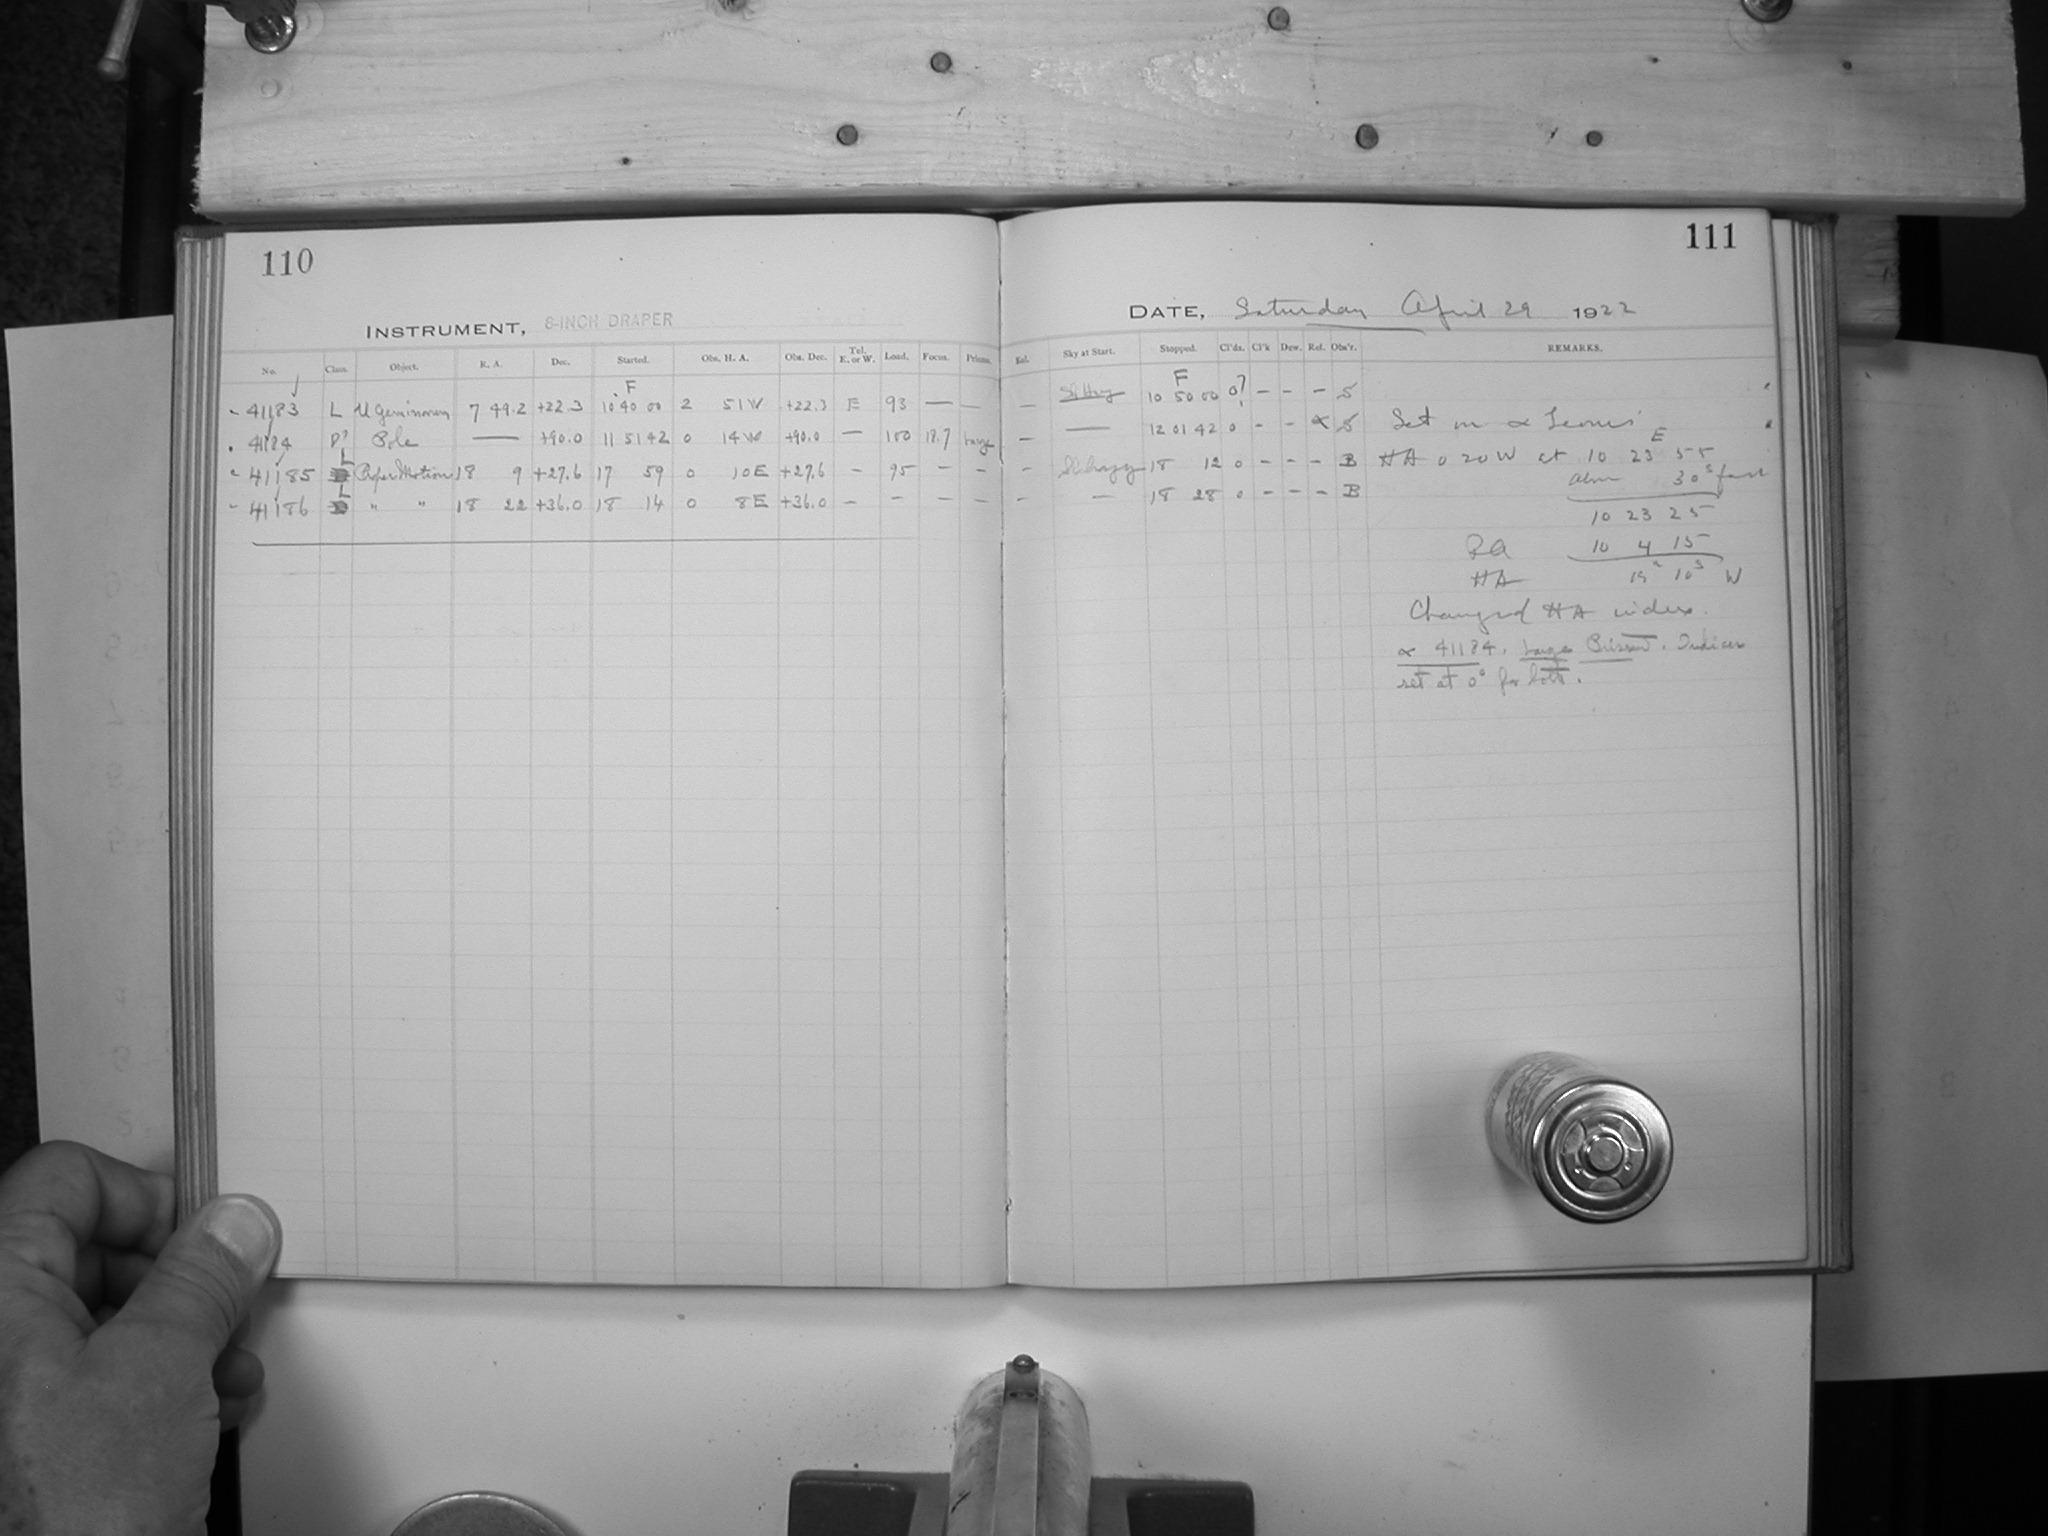 110
INSTRUMENT, 8-INCH DRAPER
No. Class. Object. R. A. Dec. Started. Obs. H. A. Obs. Dec. Tel. E. or W. Load. Focus. Prisms.
41183 L U Geminorum 7 49.2 +22.3 F 10 40 00 2 51 W +22.3 E 93 — —
41184 P? Pole — +90.0 11 51 42 0 14 W +90.0 — 100 18.7 Large
41185 L Proper Motion 18 9 +27.6 17 59 0 10 E +27.6 - 95 - -
41186 L " " 18 22 +36.0 18 14 0 8 E +36.0 - - - -
111
DATE, Saturday April 29 1922
Sky at Start. Stopped. Cl'ds. Cl'k Dew. Rel. Obs'r. REMARKS.
— Sl. Hazy F 10 50 00 0? - - - S
— — 12 01 42 0 - - ∝ S
- Sl. hazy 18 12 0 - - - B
- — 18 28 0 - - - B
Set on α Leonis
HA 0 20 W at 10 23 55 E
30s fast
10 23 25
RA 10 4 15
HA 19m 10s W
Changed HA index.
∝ 41184. Large Prism. Indices
set at 0° for both.